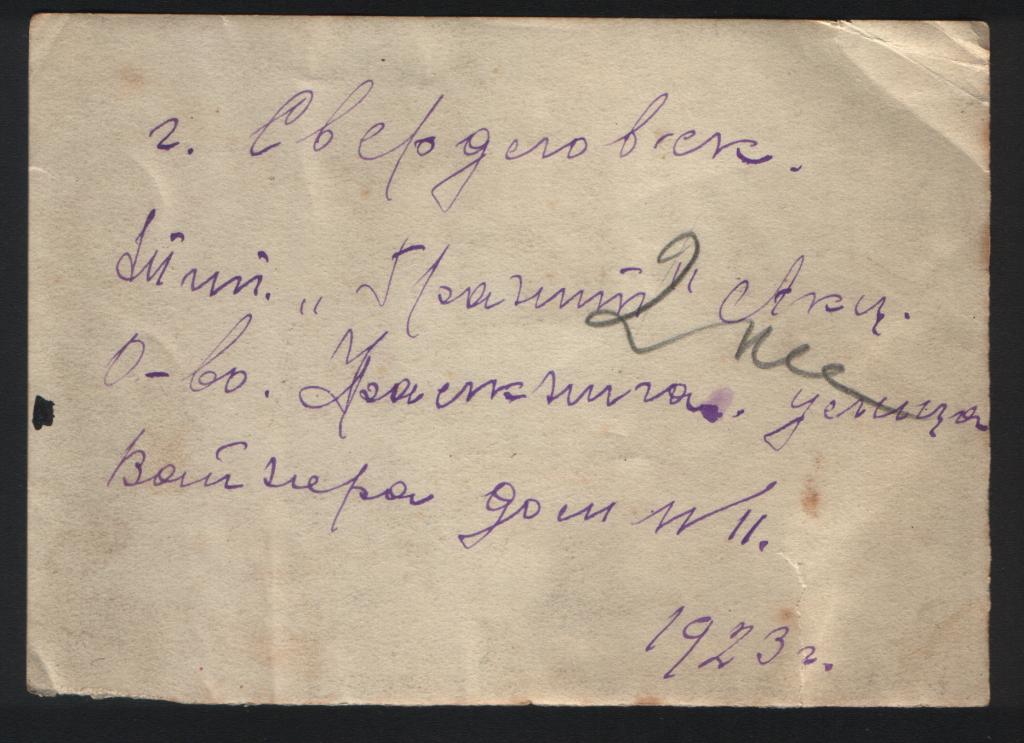 г. Свердловск.
Тип. „Гранит" Акц.
О-во. Уралкнига. улица
Вайнера дом № 11.
1923 г.